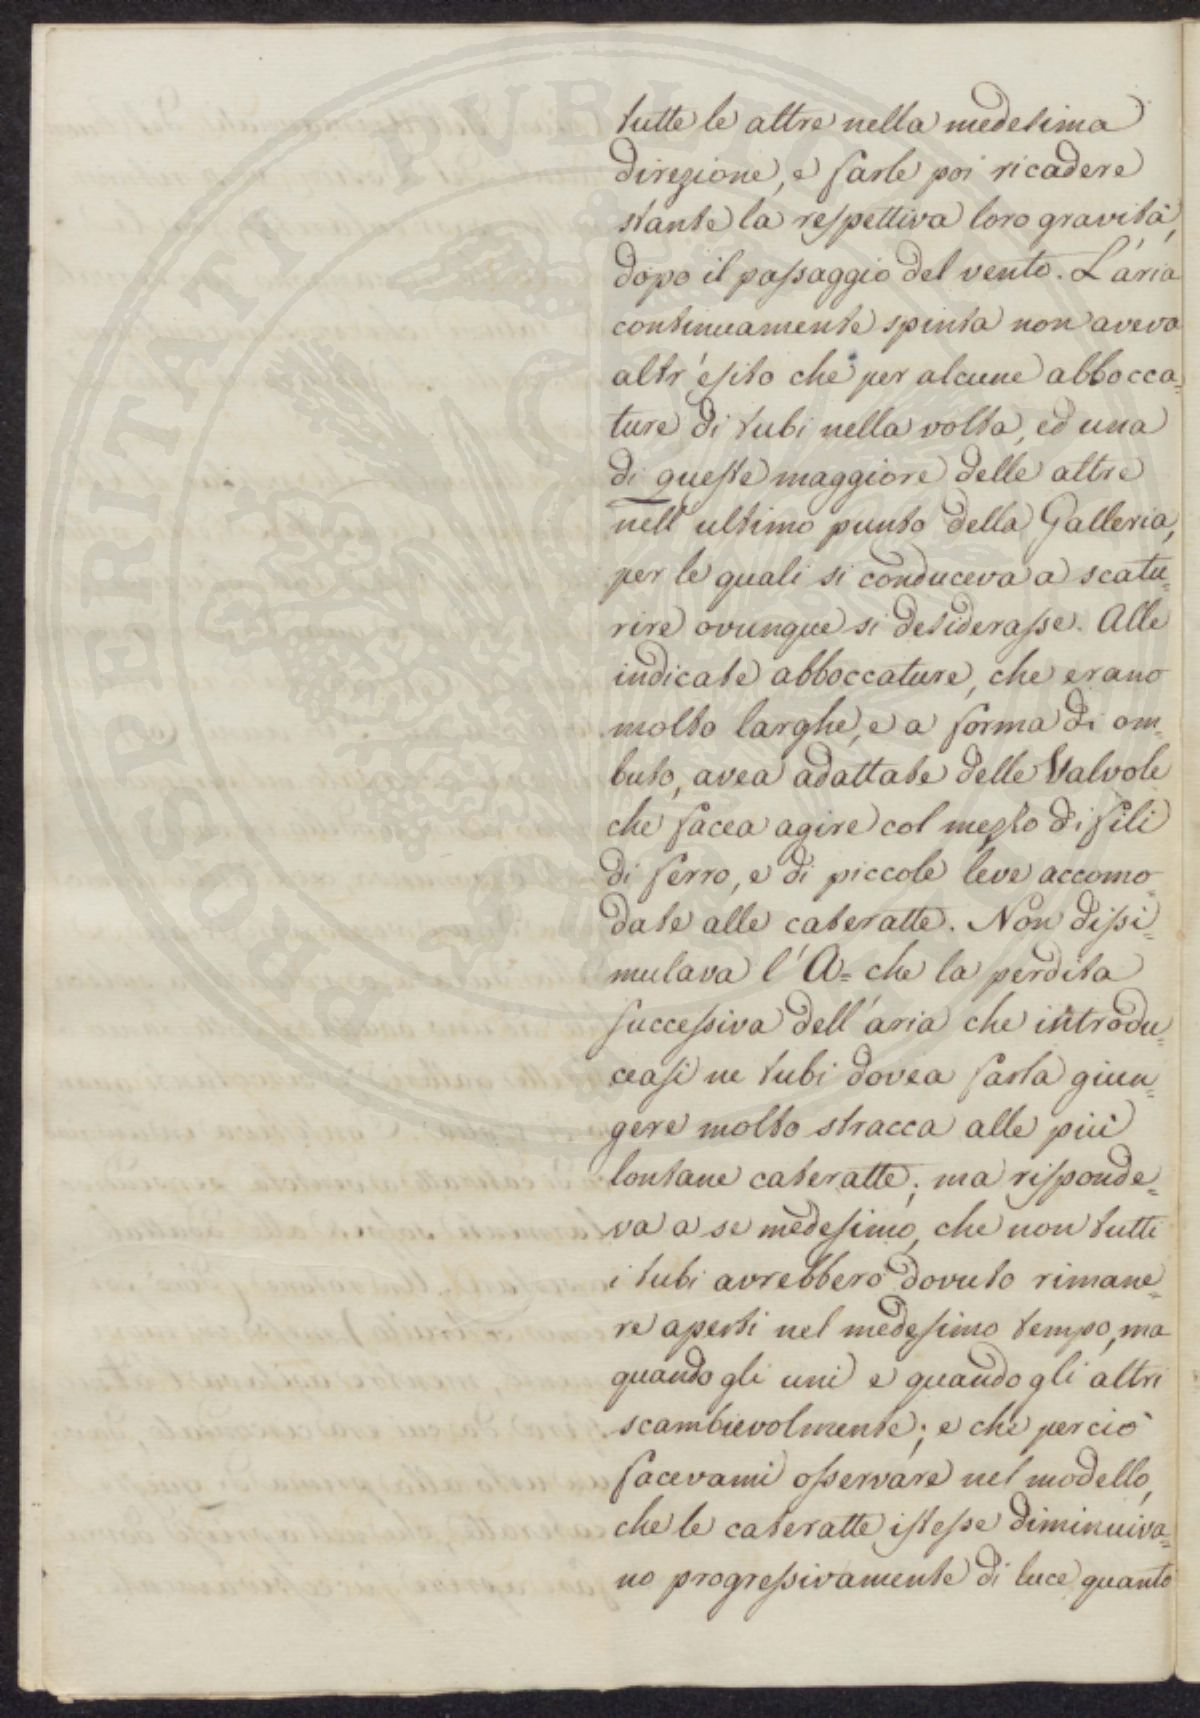 tutte le altre nella medesima
direzione, e farle poi ricadere
stante la respettiva loro gravità,
dopo il passaggio del vento. L'aria
continuamente spinta non aveva
altr'esito che per alcune abbocca=
ture di tubi nella volta, ed una
di queste maggiore delle altre
nell ultimo punto della Galleria,
per le quali si conduceva a scatu=
rire ovunque si desiderasse. Alle
indicate abboccature, che erano
molto larghe, e a forma di om=
buto, avea adattate delle Valvole
che facea agire col mezzo di fili
di ferro, e di piccole leve accomo=
date alle cateratte. Non dissi=
mulava l'A= che la perdita
successiva dell'aria che introdu=
ceasi ne tubi dovea farla giun=
gere molto stracca alle più
lontane cateratte; ma risponde=
va a se medesimo, che non tutti
i tubi avrebbero dovuto rimane=
re aperti nel medesimo tempo, ma
quando gli uni e quando gli altri
scambievolmente; e che perciò
facevami osservare nel modello,
che le cateratte istesse diminuiva=
no progressivamente di luce quanto
PROSPERITATI PVBLIC